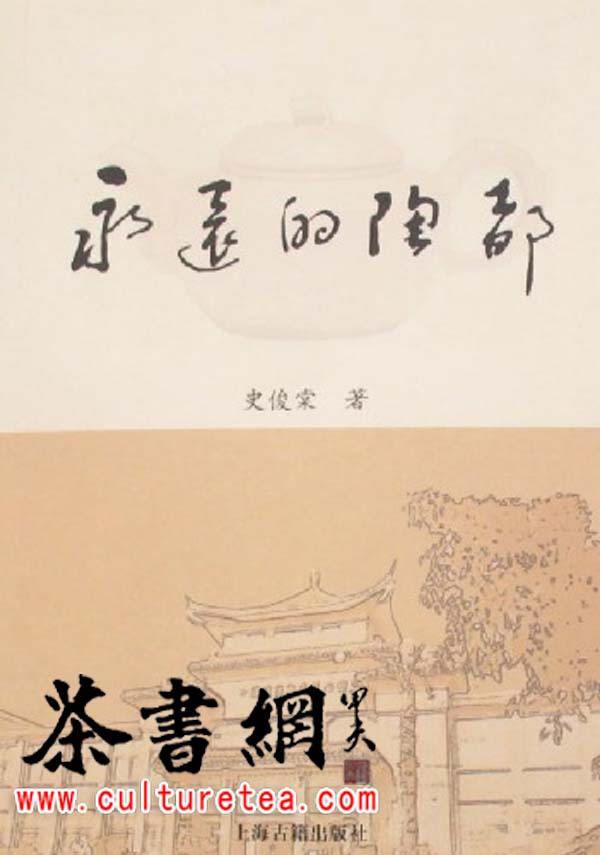 永遠的陶都
史俊棠 著
茶書網
www.culturetea.com
上海古籍出版社